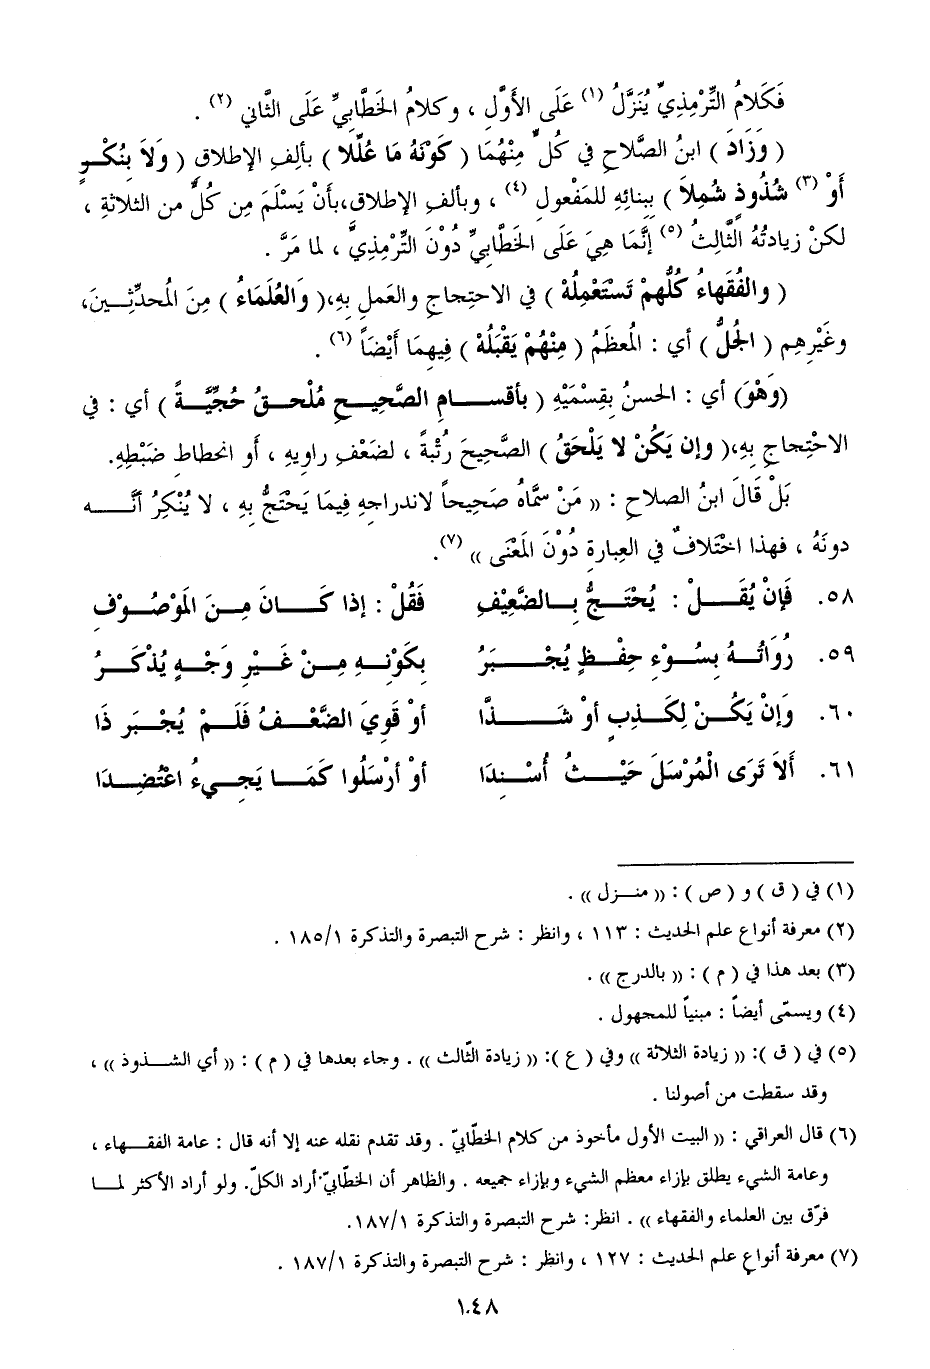 فَكَلامُ التِّرْمِذِيِّ يُنَزَّلُ (١) عَلَى الأَوَّلِ ، وكلامُ الخَطَّابيِّ عَلَى الثَّاني (٢) .
( وَزَادَ ) ابنُ الصَّلاحِ في كُلٍّ مِنْهُمَا ( كَوْنَهُ مَا عُلِّلا ) بألِفِ الإطلاقِ ( وَلاَ بِنُكْرٍ
أَوْ (٣) شُذُوذٍ شُمِلاَ ) ببِنائِهِ للمَفْعولِ (٤) ، وبألفِ الإطلاقِ،بأنْ يَسْلَمَ مِن كُلٍّ من الثلاثةِ ،
لكنْ زيادتُهُ الثَّالِثُ (٥) إنَّمَا هِيَ عَلَى الخَطَّابيِّ دُوْنَ التِّرْمِذيِّ ، لما مَرَّ .
( والفُقَهاءُ كُلُّهمْ تَسْتَعْمِلُهْ ) في الاحتِجاجِ والعَملِ بِهِ،( وَالعُلَمَاءُ ) مِنَ المُحدِّثِيـنَ،
وغَيْرِهِم ( الجُلُّ ) أي : المُعظَمُ ( مِنْهُمْ يَقْبَلُهْ ) فِيهِمَا أَيْضَاً (٦) .
(وَهْوَ) أي : الحسنُ بِقِسْمَيْهِ ( بأقسـامِ الصَّحيـحِ مُلْحـقُ حُجِّيَّـةً ) أي : في
الاحْتِجاجِ بِهِ،( وإن يَكُنْ لا يَلْحَقُ ) الصَّحيحَ رُتْبةً ، لضَعْفِ راويهِ ، أو انحطاطِ ضَبْطِهِ.
بَلْ قَالَ ابنُ الصلاحِ : (( مَنْ سمَّاهُ صَحيحاً لاندراجِهِ فِيمَا يَحْتَجُّ بِهِ ، لا يُنْكِرُ أنَّـه
دونَهُ ، فهذا اخْتلافٌ في العِبارةِ دُوْنَ المَعْنَى )) (٧).
٥٨. فَإنْ يُقَـلْ : يُحْتَجُّ بِـالضَّعِيْفِ فَقُلْ : إذا كَـانَ مِـنَ المَوْصُـوْفِ
٥٩. رُوَاتُـهُ بِسُـوْءِ حِفْـظٍ يُجْـبَرُ بِكَوْنِـهِ مِـنْ غَـيْرِ وَجْـهٍ يُذْكَـرُ
٦٠. وَإنْ يَكُـنْ لِكَـذِبٍ أوْ شَـذَّا أوْ قَوِيَ الضَّعْـفُ فَلَـمْ يُجْبَر ذَا
٦١. أَلاَ تَرَى الْمُرْسَلَ حَيْـثُ أُسْـنِدَا أوْ أرْسَلُوا كَمَـا يَجـيءُ اعْتُضِـدَا
(١) في ( ق ) و ( ص ) : (( منـزل )) .
(٢) معرفة أنواع علم الحديث : ١١٣ ، وانظر : شرح التبصرة والتذكرة ١/ ١٨٥ .
(٣) بعد هذا في ( م ) : (( بالدرج )) .
(٤) ويسمّى أيضاً : مبنياً للمجهول .
(٥) في ( ق ): (( زيادة الثلاثة )) وفي ( ع ): (( زيادة الثّالث )) . وجاء بعدها في ( م ) : (( أي الشـذوذ )) ،
وقد سقطت من أصولنا .
(٦) قال العراقي : (( البيت الأول مأخوذ من كلام الخطّابيّ . وقد تقدم نقله عنه إلا أنه قال : عامة الفقـهاء ،
وعامة الشيء يطلق بإزاء معظم الشيء وبإزاء جميعه . والظاهر أن الخطّابيّ أراد الكلّ. ولو أراد الأكثر لمـا
فرّق بين العلماء والفقهاء )) . انظر: شرح التبصرة والتذكرة ١/ ١٨٧.
(٧) معرفة أنواع علم الحديث : ١٢٧ ، وانظر : شرح التبصرة والتذكرة ١/ ١٨٧ .
١٠٤٨